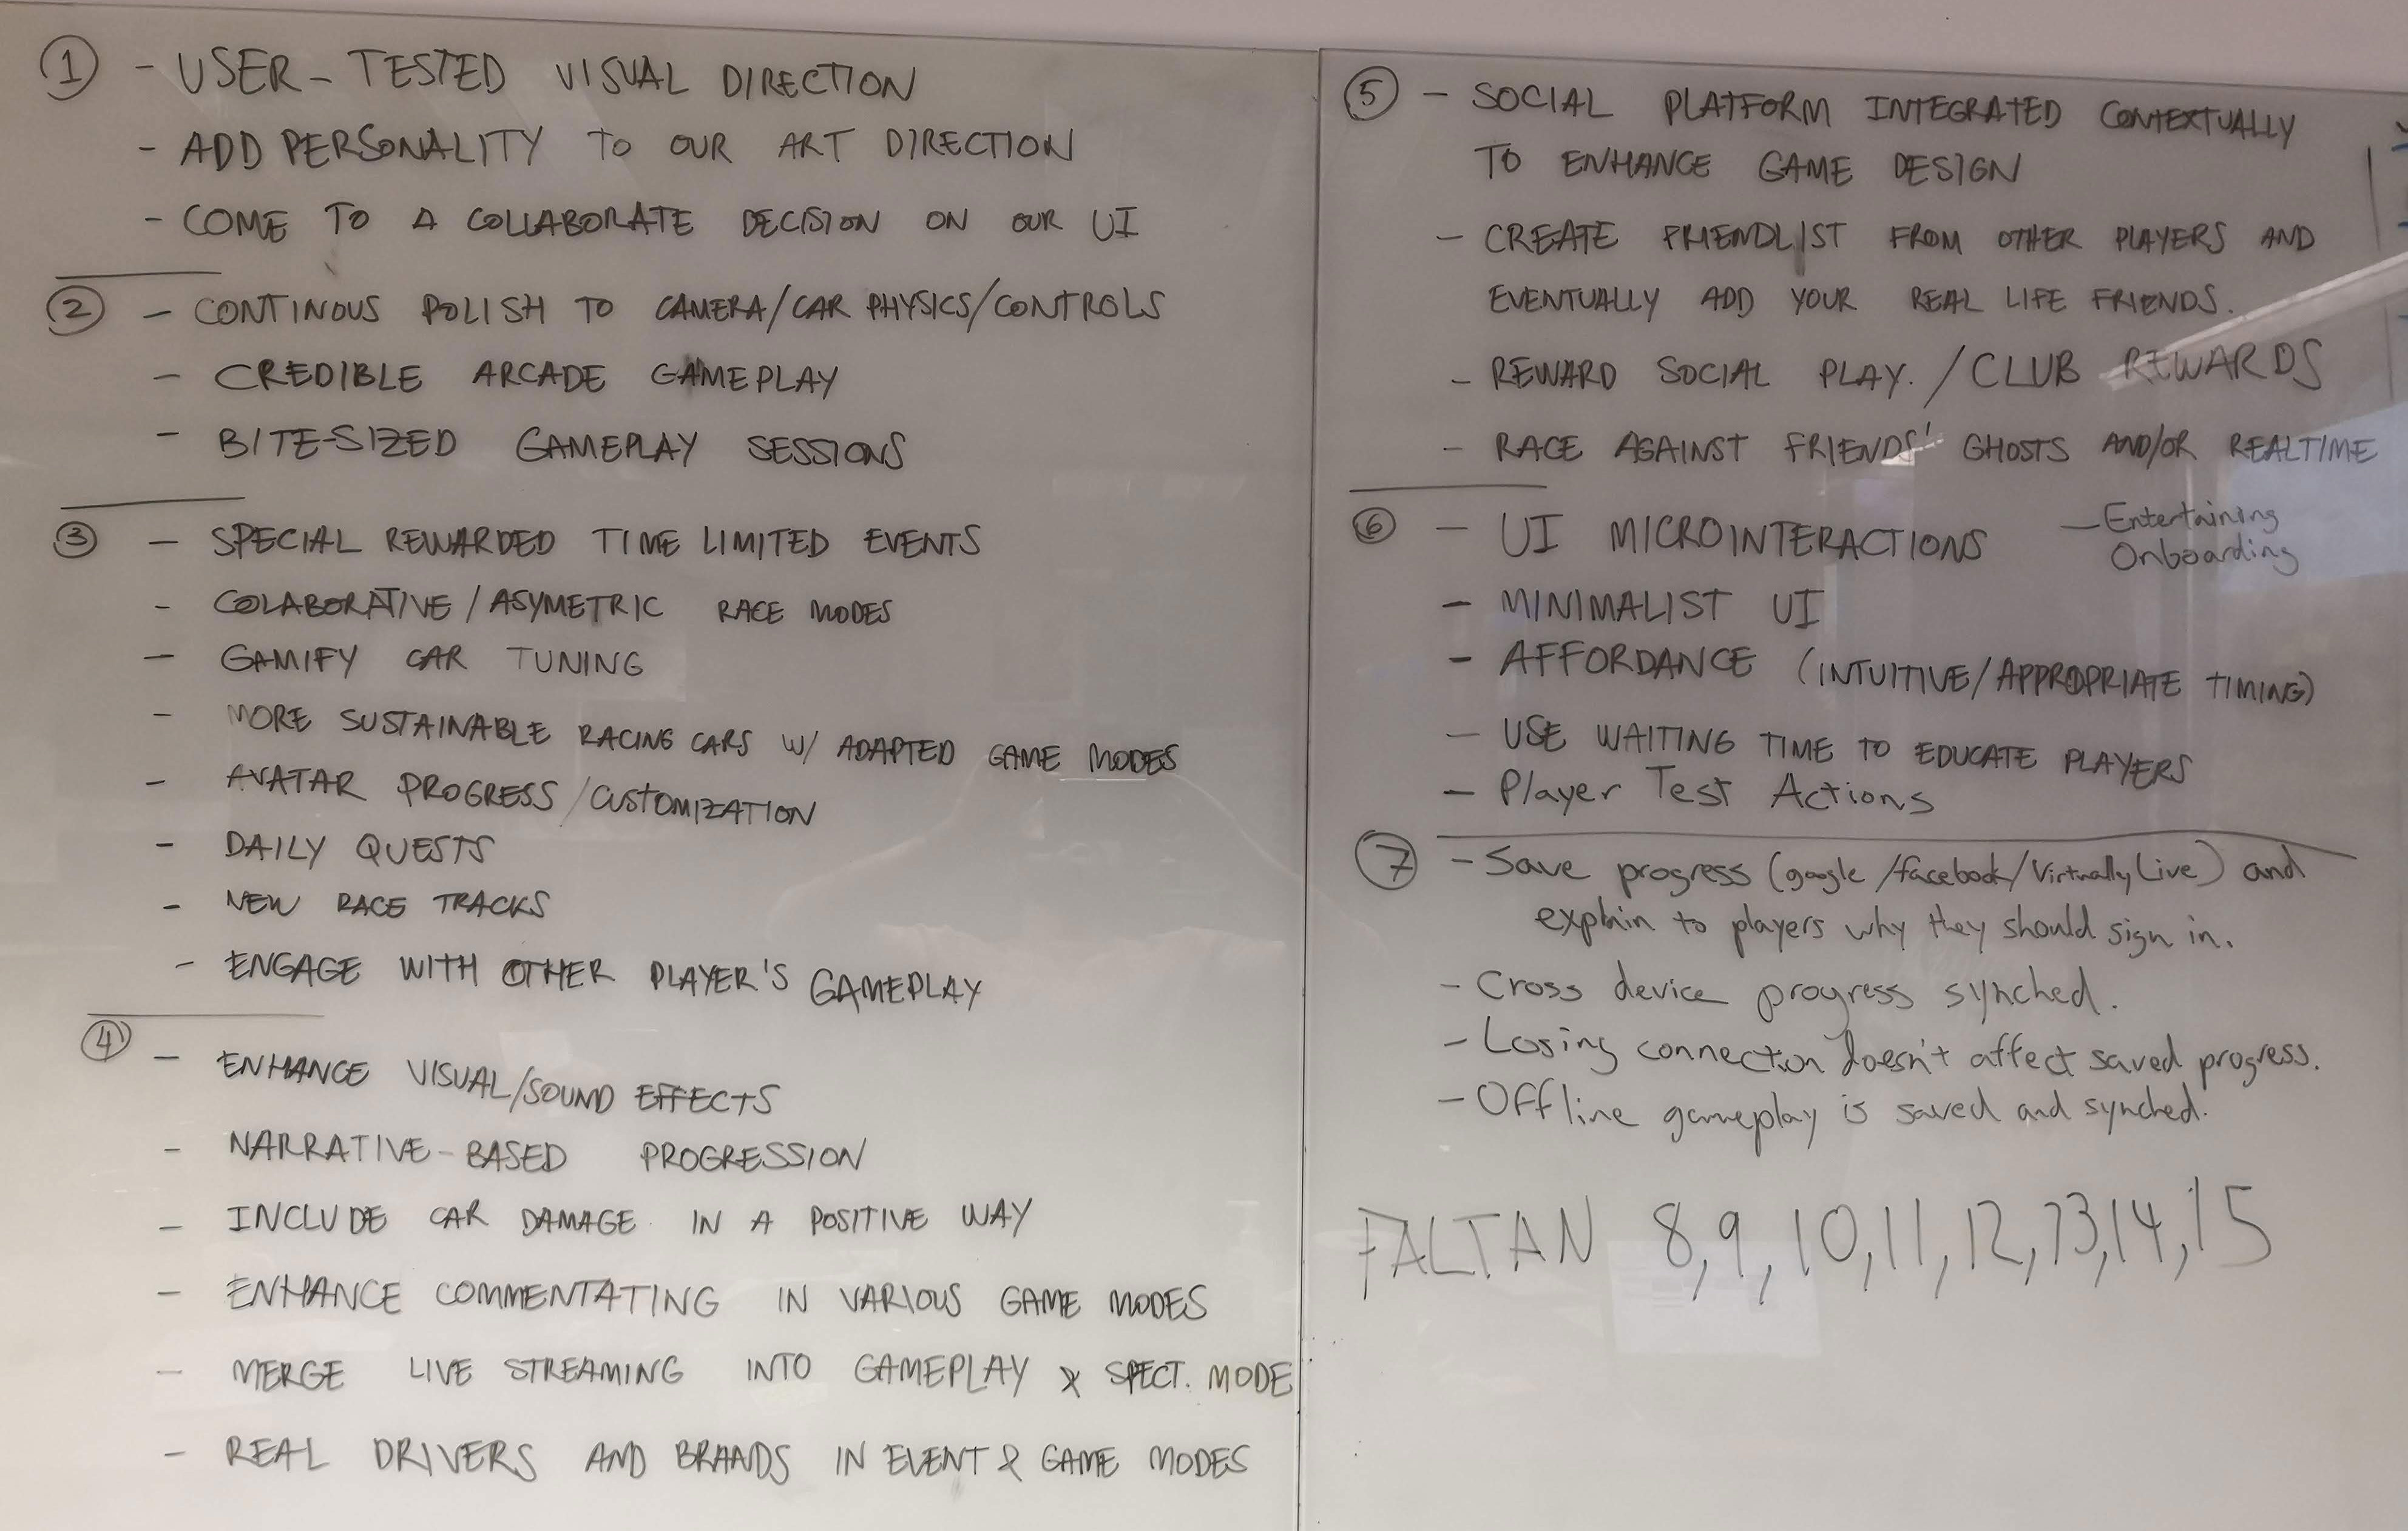 ① - USER-TESTED VISUAL DIRECTION
- ADD PERSONALITY TO OUR ART DIRECTION
- COME TO A COLLABORATE DECISION ON OUR UI
② - CONTINOUS POLISH TO CAMERA/CAR PHYSICS/CONTROLS
- CREDIBLE ARCADE GAMEPLAY
- BITE-SIZED GAMEPLAY SESSIONS
③ - SPECIAL REWARDED TIME LIMITED EVENTS
- COLABORATIVE/ASYMETRIC RACE MODES
- GAMIFY CAR TUNING
- MORE SUSTAINABLE RACING CARS W/ ADAPTED GAME MODES
- AVATAR PROGRESS/CUSTOMIZATION
- DAILY QUESTS
- NEW RACE TRACKS
- ENGAGE WITH OTHER PLAYER'S GAMEPLAY
④ - ENHANCE VISUAL/SOUND EFFECTS
- NARRATIVE-BASED PROGRESSION
- INCLUDE CAR DAMAGE IN A POSITIVE WAY
- ENHANCE COMMENTATING IN VARIOUS GAME MODES
- MERGE LIVE STREAMING INTO GAMEPLAY & SPECT. MODE
- REAL DRIVERS AND BRANDS IN EVENT & GAME MODES
⑤ - SOCIAL PLATFORM INTEGRATED CONTEXTUALLY
TO ENHANCE GAME DESIGN
- CREATE FRIENDLIST FROM OTHER PLAYERS AND
EVENTUALLY ADD YOUR REAL LIFE FRIENDS.
- REWARD SOCIAL PLAY. / CLUB REWARDS
- RACE AGAINST FRIENDS' GHOSTS AND/OR REALTIME
⑥ - UI MICROINTERACTIONS
- Entertaining
Onboarding
- MINIMALIST UI
- AFFORDANCE (INTUITIVE/APPROPRIATE TIMING)
- USE WAITING TIME TO EDUCATE PLAYERS
- Player Test Actions
⑦ - Save progress (google/facebook/Virtually Live) and
explain to players why they should sign in.
- Cross device progress synched.
- Losing connection doesn't affect saved progress.
- Offline gameplay is saved and synched.
FALTAN 8,9,10,11,12,13,14,15